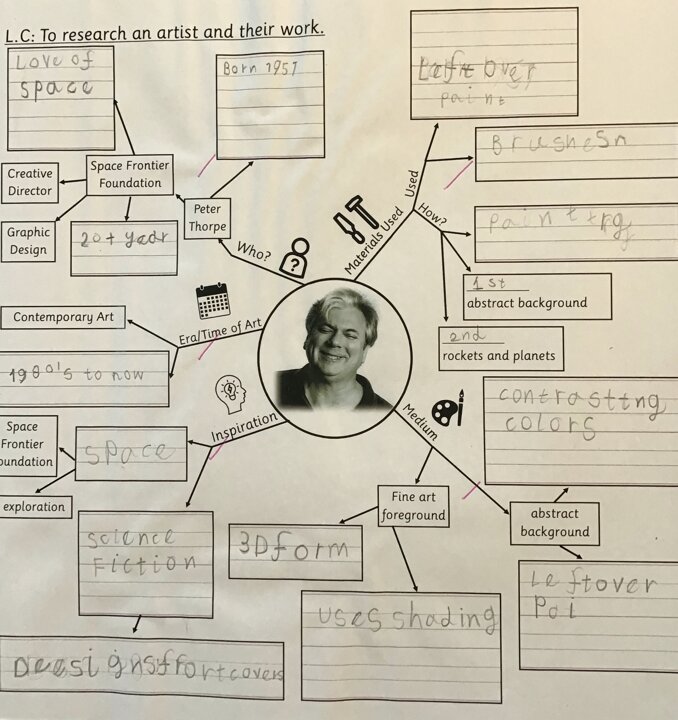 L.C: To research an artist and their work.
Love of
space
Born 1957
Left over
paint
Brushes
Creative
Director
Space Frontier
Foundation
Graphic
Design
20+ year
Peter
Thorpe
Who?
Materials Used
Used
How?
1st
abstract background
2nd
rockets and planets
Contemporary Art
Era/Time of Art
1980's to now
Inspiration
Space
Frontier
oundation
space
exploration
science
Fiction
Medium
contrasting
colors
Fine art
foreground
abstract
background
3D form
uses shading
Leftover
Pai